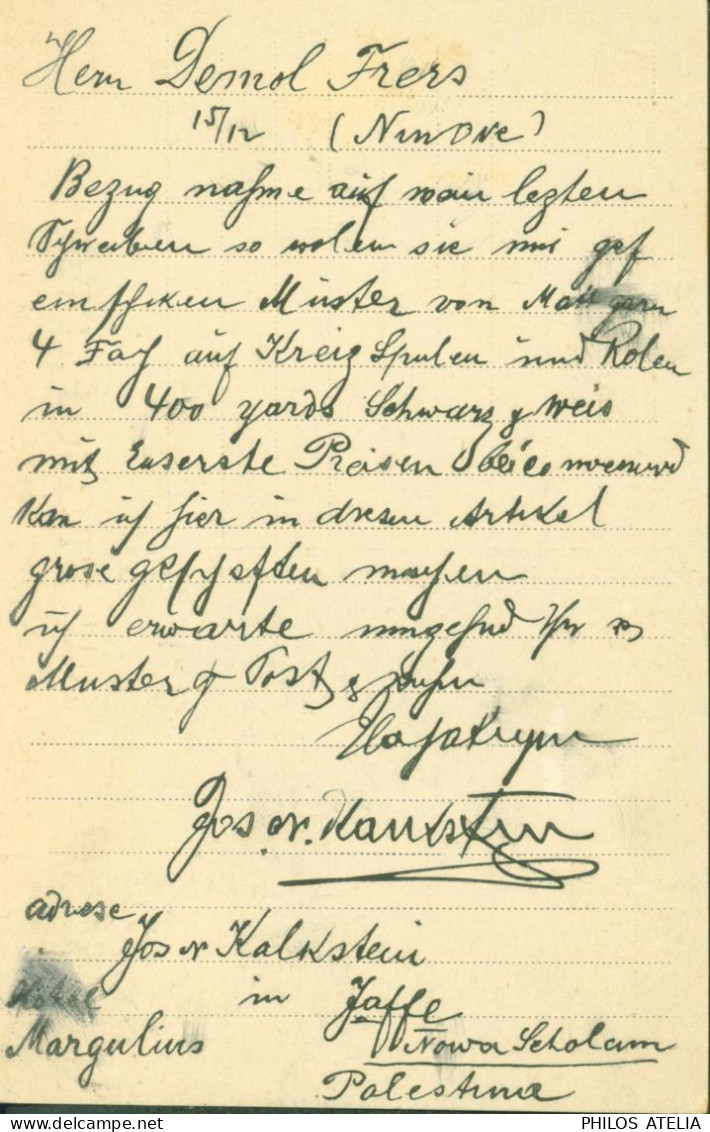 Hern Demol Frers
15/12 (Ninove)
Bezug nahme auf mein lezten
Schreiben so wolen sie mir gef
einschiken Muster von Matt garn
4 Fach auf Kreiz Spulen und Rolen
in 400 yards Schwarz & Weis
mit Euserste Preisen
Kan ich hier in diesen Artikel
grose geschäften machen
ich erwarte umgehnd Ihr
Muster & Post
Jos. N. Kalkstein
adrese
Jos N Kalkstein
Hotel in Jaffe
Margulius Nowa Scholam
Palestina
PHILOS ATELIA